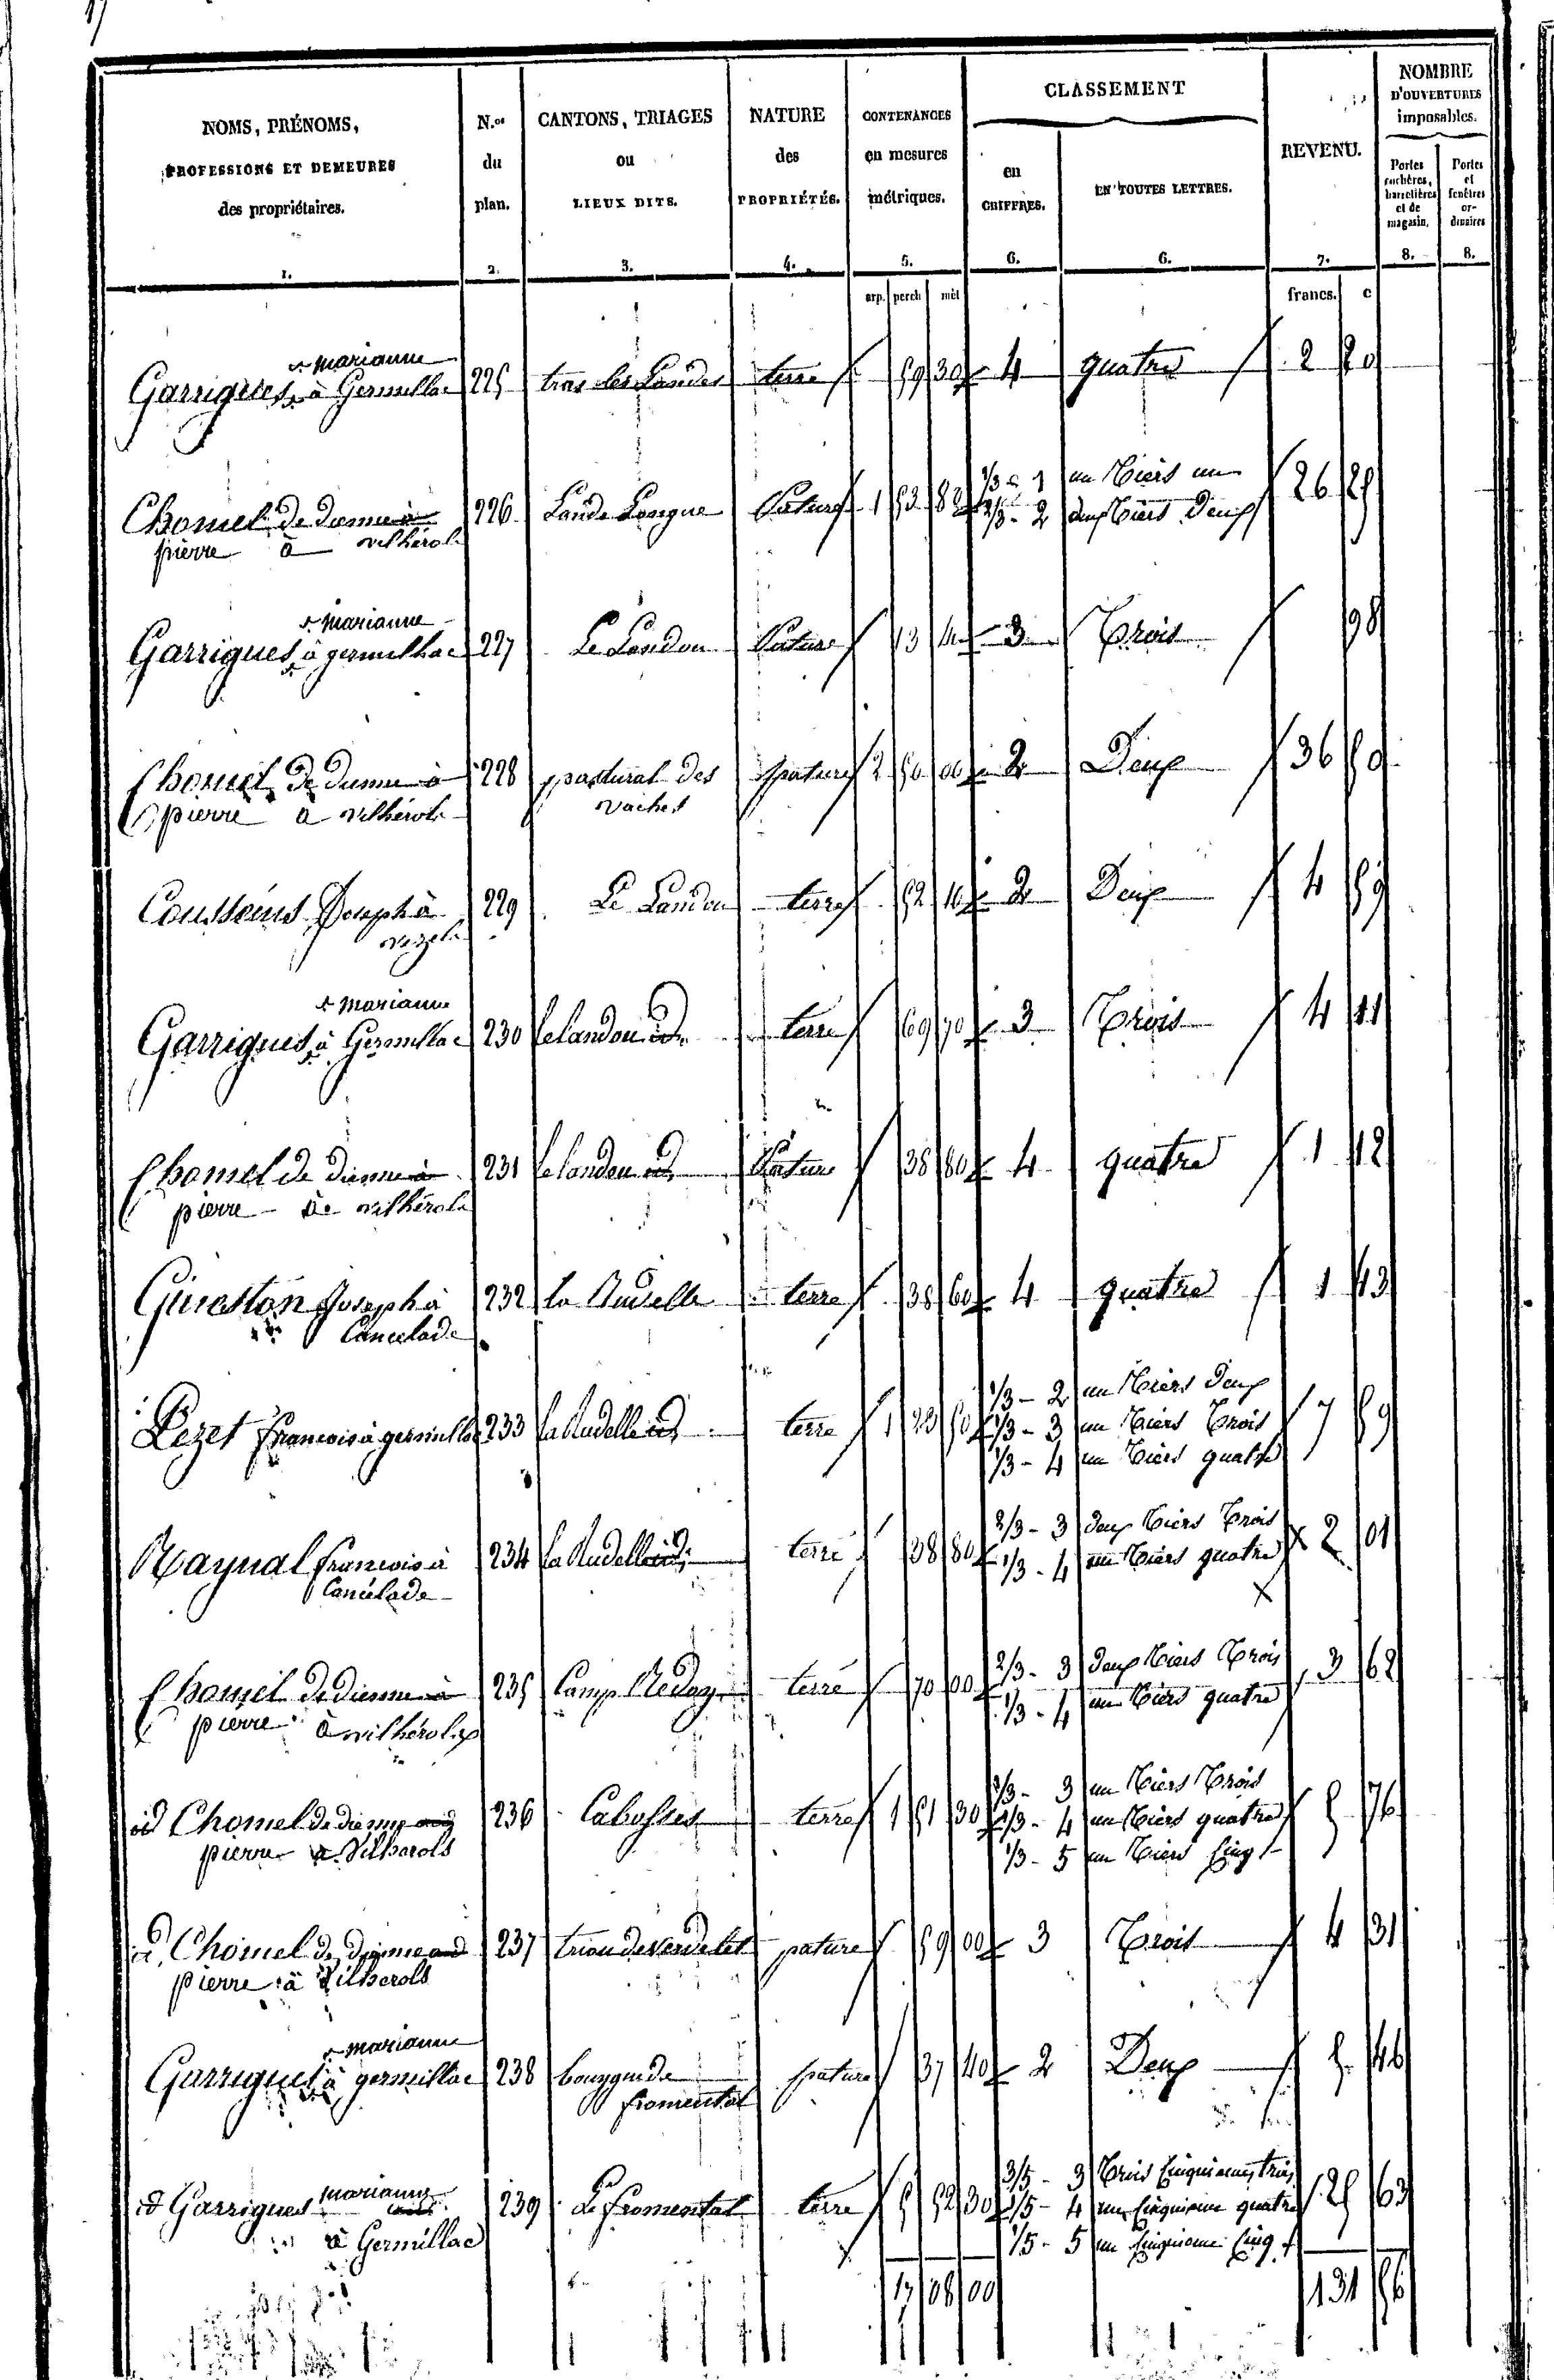 17
NOMS, PRÉNOMS, PROFESSIONS ET DEMEURES des propriétaires. 1.
N.os du plan. 2.
CANTONS, TRIAGES ou LIEUX DITS. 3.
NATURE des PROPRIÉTÉS. 4.
CONTENANCES en mesures métriques. 5.
CLASSEMENT
en CHIFFRES. 6.
EN TOUTES LETTRES. 6.
REVENU. 7.
NOMBRE D'OUVERTURES imposables.
Portes cochères, barretières et de magasin. 8.
Portes et fenêtres ordinaires 8.
arp. perch mèt francs. c
marianne
Garrigues à Germillac 225 tras les Landes terre 59 30 4 quatre 2 20
1/3 - 1 un tiers un
Chomel de dienne à 226 Lande Longue Pature 1 53 82 2/3 - 2 deux tiers Deux 26 25
pierre à vilhérols
marianne
Garrigues à germilhac 227 Le Landou Pature 13 3 Trois 98
Chomel de dienne à 228 pastural des pature 2 50 00 2 Deux 36 50
pierre à vilhérols vaches
Joseph à 229 Le Landou terre 52 10 2 Deux 4 59
marianne
Garrigues à Germillac 230 le landou id terre 69 70 3 Trois 4 11
Chomel de dienne à 231 le landou id Pature 38 80 4 quatre 1 12
pierre à vilhérols
Joseph à 232 la Rudelle terre 38 60 4 quatre 1 43
Cancelade
1/3 - 2 un tiers Deux
Pezet francois à germillac 233 la Rudelle id terre 1 23 50 1/3 - 3 un tiers trois 7 59
1/3 - 4 un tiers quatre
2/3 - 3 deux tiers trois
Raynal francois à 234 la Rudelle id terre 38 80 1/3 - 4 un tiers quatre 2 01
Cancelade
2/3 - 3 deux tiers trois
Chomel de dienne à 235 Camp Redon terre 70 00 1/3 - 4 un tiers quatre 3 62
pierre à vilhérols
1/3 - 3 un tiers trois
id Chomel de dienne 236 Cabosses terre 1 51 30 1/3 - 4 un tiers quatre 5 76
pierre à Vilherols 1/3 - 5 un tiers Cinq
id Chomel de dienne 237 pature 59 00 3 Trois 4 31
pierre à Vilherols
marianne
Garrigues à germillac 238 bouygue de pature 37 40 2 Deux 5 46
fromental
3/5 - 3 Trois Cinquiemes trois
id Garrigues marianne 239 Le fromental terre 5 52 30 1/5 - 4 un Cinquieme quatre 25 63
à Germillac 1/5 - 5 un Cinquieme Cinq
17 08 00 131 56